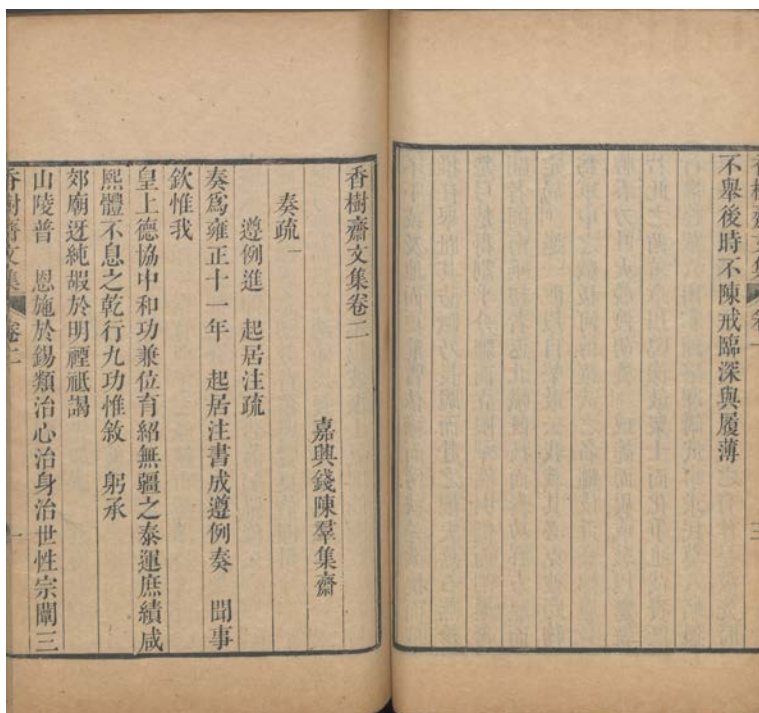 香樹齋文集 卷一 三
不舉後時不陳戒臨深與履薄
香樹齋文集卷二
嘉興錢陳羣集齋
奏疏一
遵例進 起居注疏
奏爲雍正十一年 起居注書成遵例奏 聞事
欽惟我
皇上德協中和功兼位育紹無疆之泰運庶績咸
熙體不息之乾行九功惟敘 躬承
郊廟迓純嘏於明禋祗謁
山陵普 恩施於錫類治心治身治世性宗闡三
香樹齋文集 卷二 一